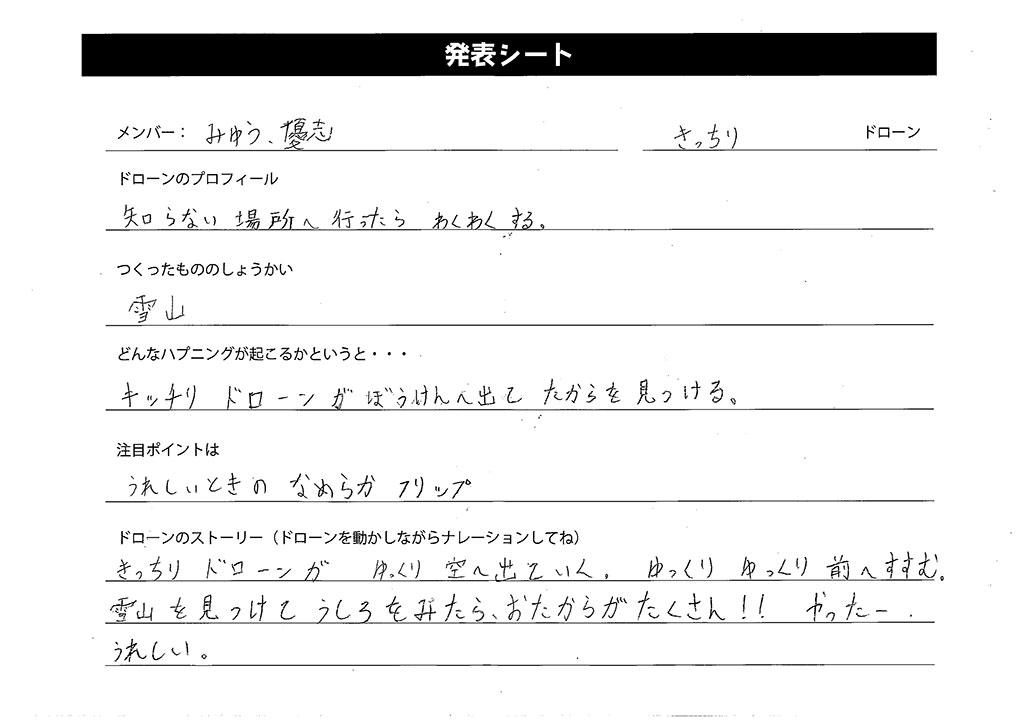 発表シート
メンバー： みゆう、優志 きっちり ドローン
ドローンのプロフィール
知らない場所へ行ったら わくわくする。
つくったもののしょうかい
雪山
どんなハプニングが起こるかというと・・・
キッチリ ドローンが ぼうけんへ出て たからを見つける。
注目ポイントは
うれしいときの なめらか フリップ
ドローンのストーリー（ドローンを動かしながらナレーションしてね）
きっちり ドローンが ゆっくり 空へ出ていく。 ゆっくり ゆっくり 前へすすむ。
雪山を見つけて うしろをみたら、おたからがたくさん！！ やったー．
うれしい。